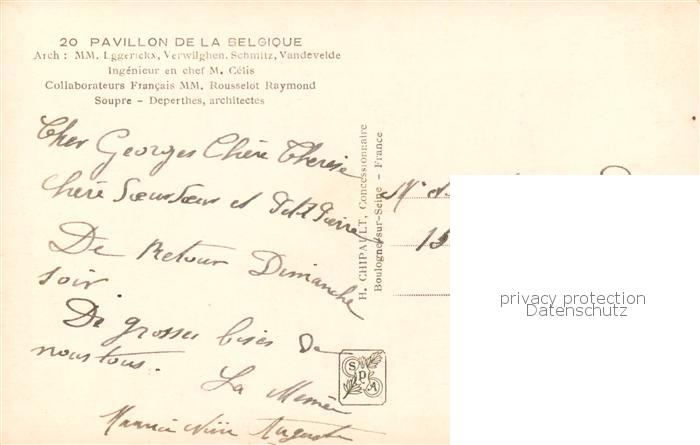 20 PAVILLON DE LA BELGIQUE
Arch : MM. Eggerickx, Verwilghen, Schmitz, Vandevelde
Ingénieur en chef M. Célis
Collaborateurs Français MM. Rousselot Raymond
Soupre - Deperthes, architectes
Cher Georges Chère Therese
Chère Sœur Sœur et Petit Pierre
De Retour Dimanche
soir
De grosses bises de
nous tous.
La Mémé
Auguste
H. CHIPAULT, Concessionnaire
Boulogne-sur-Seine - France
15
SPA
privacy protection
Datenschutz